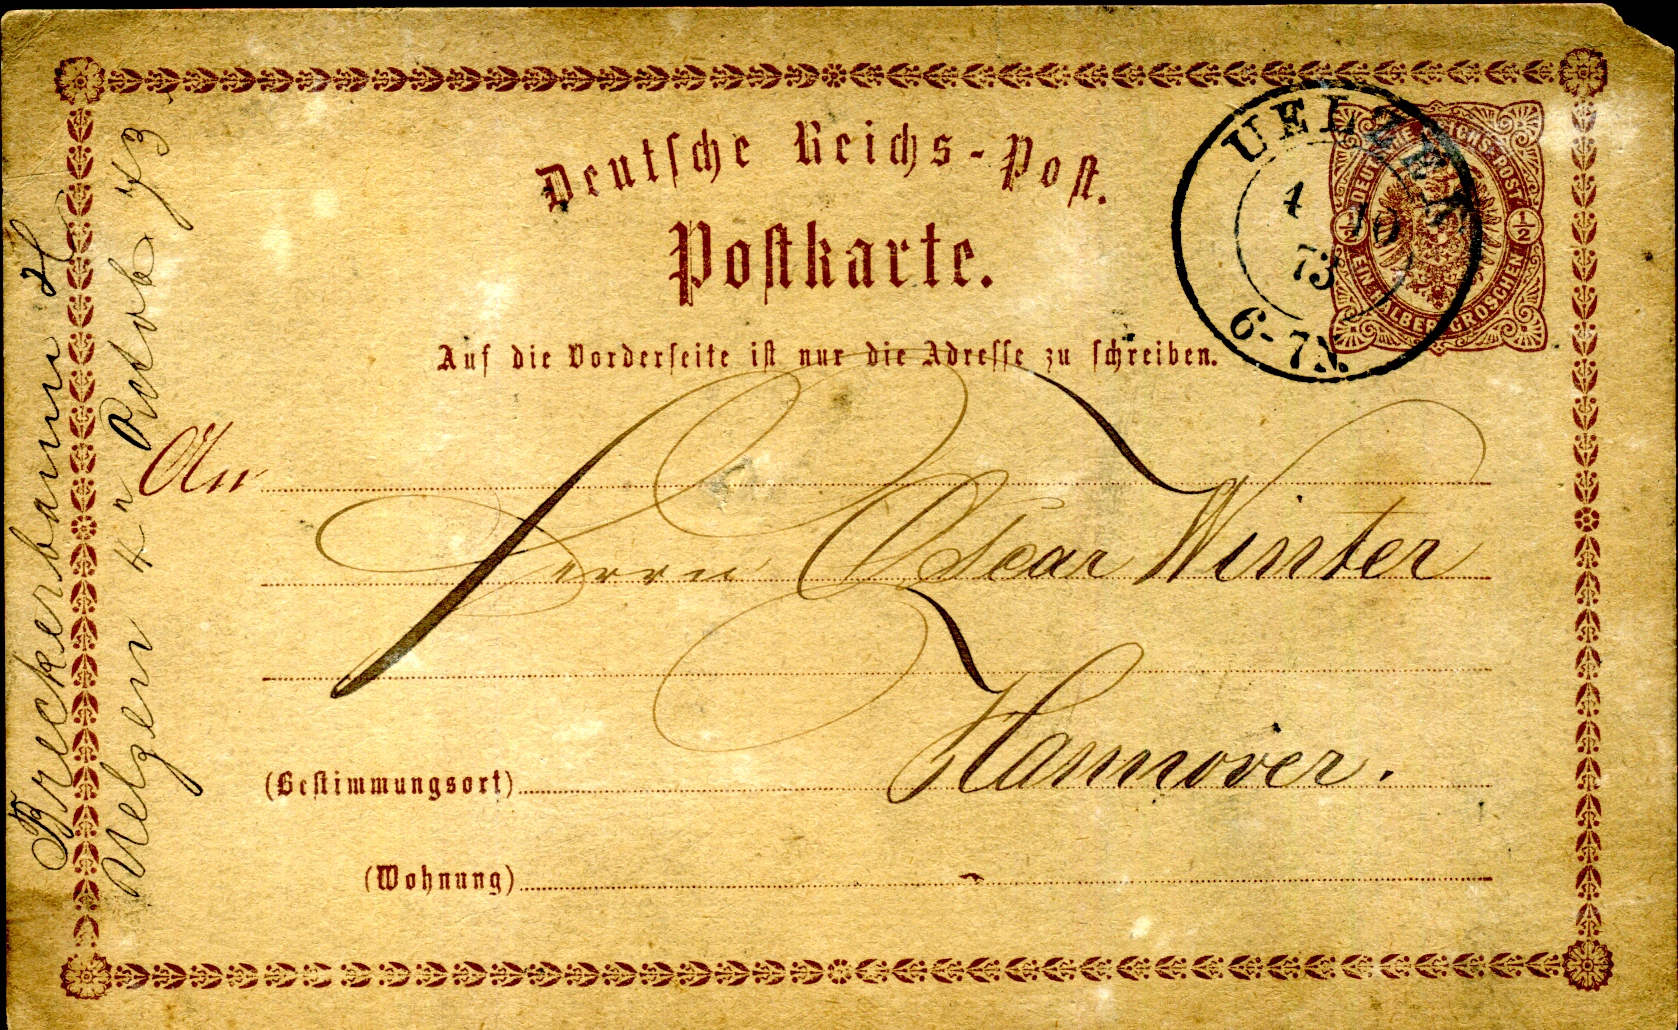 Deutsche Reichs-Post.
Postkarte.
Auf die Vorderseite ist nur die Adresse zu schreiben.
UELZEN
4 10
73
6-7N.
DEUTSCHE REICHS-POST
½ ½
EIN HALBER GROSCHEN
An
Herrn Oscar Winter
Hannover.
(Bestimmungsort)
(Wohnung)
Breckerbaum H
Uelzen 4n Octob 73